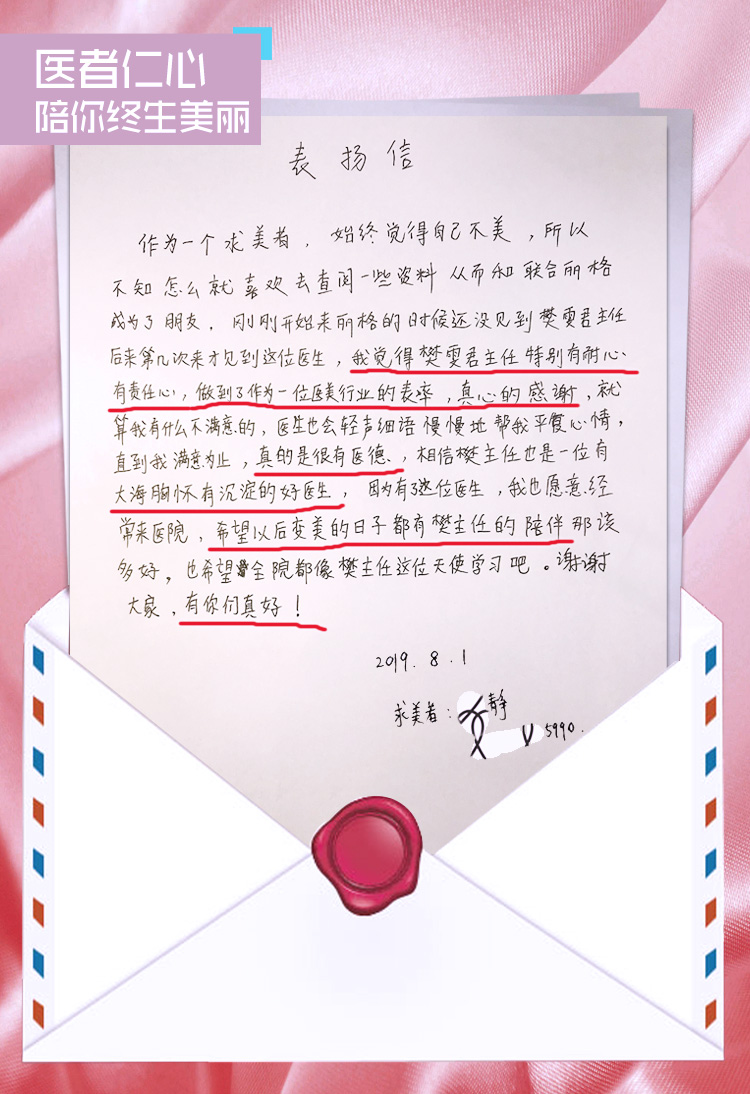 医者仁心
陪你终生美丽
表扬信
作为一个求美者，始终觉得自己不美，所以
不知怎么就喜欢去查阅一些资料从而和联合丽格
成为了朋友．刚刚开始来丽格的时候还没见到樊雯君主任
后来第几次来才见到这位医生，我觉得樊雯君主任特别有耐心、
有责任心，做到了作为一位医美行业的表率，真心的感谢，就
算我有什么不满意的，医生也会轻声细语慢慢地帮我平复心情，
直到我满意为止，真的是很有医德，相信樊主任也是一位有
大海胸怀有沉淀的好医生，因为有了这位医生，我也愿意经
常来医院，希望以后变美的日子都有樊主任的陪伴那该
多好，也希望全院都像樊主任这位天使学习吧。谢谢
大家，有你们真好！
2019.8.1
求美者：静
5990.